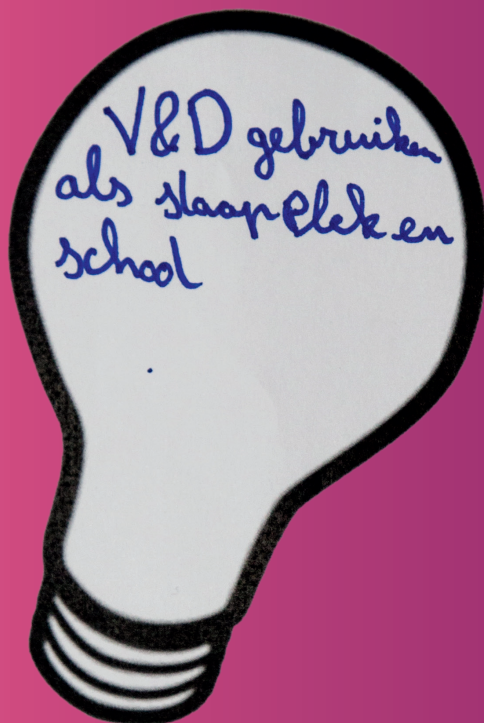 V&D gebruiken
als slaapplek en
school